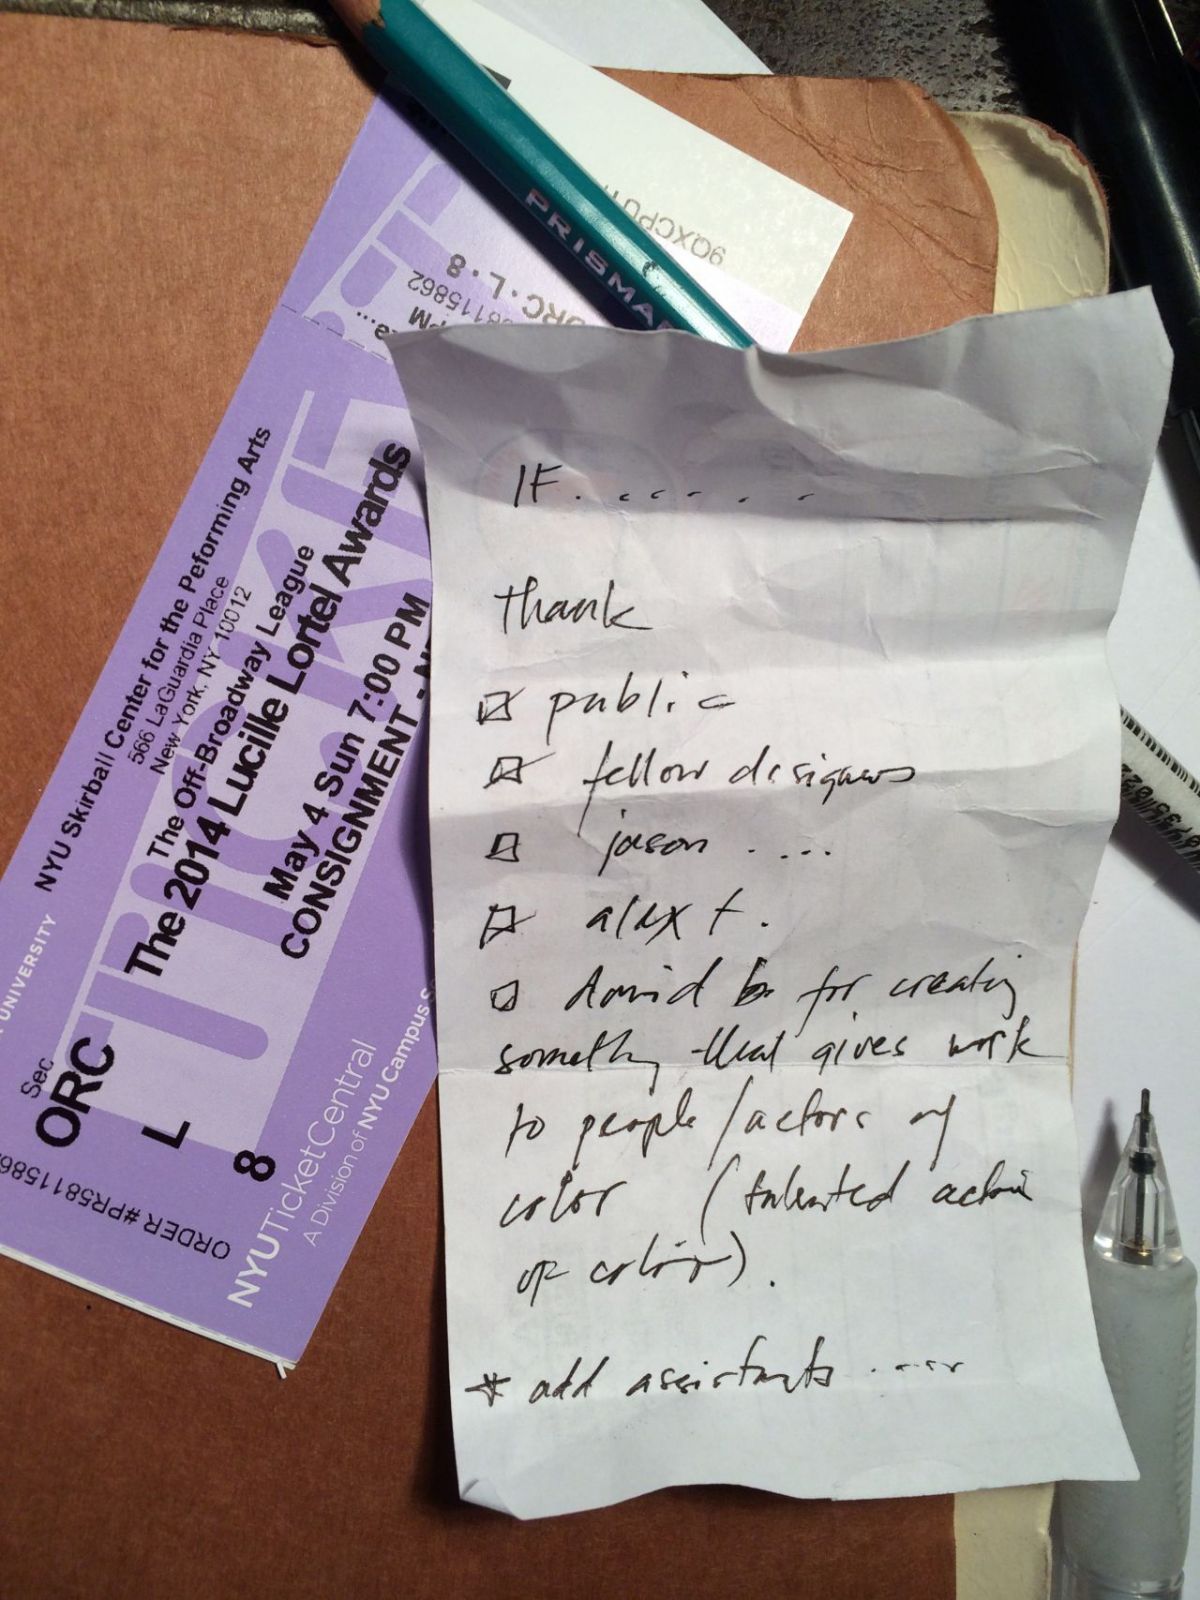 PRISMA
9QXCPU1
ORC·L·8
58115862
PM
NYU Skirball Center for the Peforming Arts
566 LaGuardia Place
New York, NY 10012
The Off-Broadway League
The 2014 Lucille Lortel Awards
May 4 Sun 7:00 PM
CONSIGNMENT - N
UNIVERSITY
Sec
ORC
L
8
ORDER #PR58115862
NYUTicketCentral
A Division of NYU Campus S
TICKET
IF . . . . . . .
thank
public
fellow designers
jason ....
alex t.
David b for creating
something that gives work
to people/actors of
color (talented actors
of color).
* add assistants ....